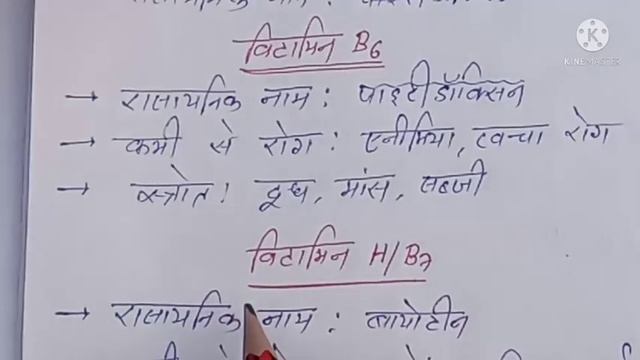 विटामिन B6
→ रासायनिक नाम : पाइरीडॉक्सिन
→ कमी से रोग : एनीमिया, त्वचा रोग
→ स्त्रोत : दूध, मांस, सब्जी
विटामिन H/B7
→ रासायनिक नाम : बायोटीन
KINEMASTER